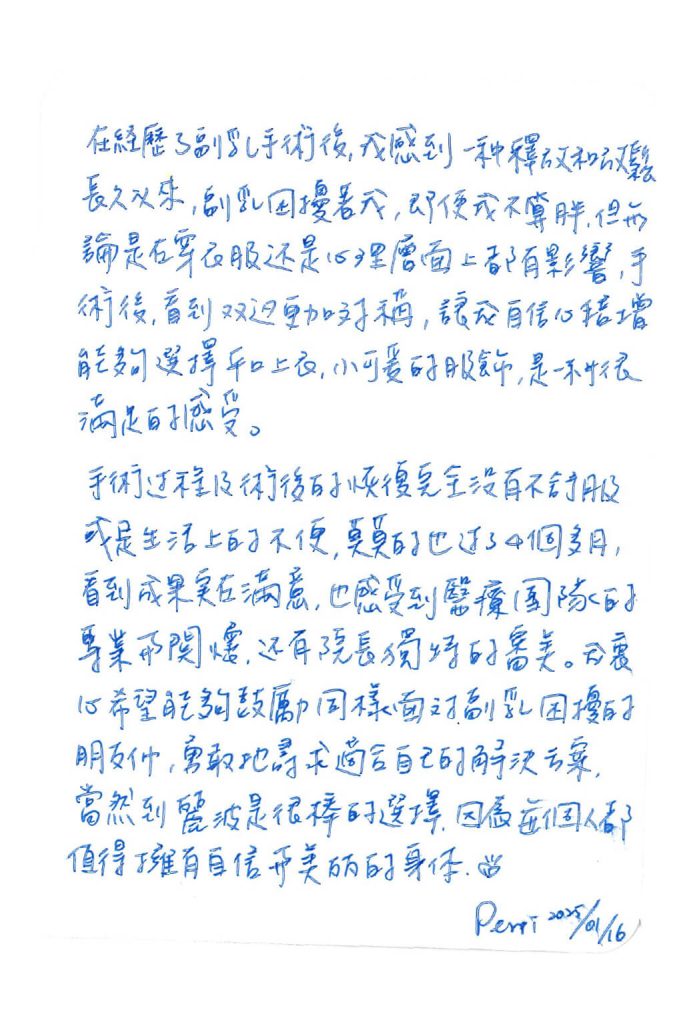 在経歷了副乳手術後,我感到一种釋放和放鬆
長久以來,副乳困擾著我,即便我不算胖,但無
論是在穿衣服还是心理層面上都有影響,手
術後,看到双边更加对稱,讓我自信心倍增
能夠選擇平口上衣,小可愛的服飾,是一种很
滿足的感受。
手術过程及術後的恢復完全沒有不舒服
或是生活上的不便,真的也过了4個多月,
看到成果实在滿意,也感受到醫療團隊的
專業和関懷,还有院長獨特的審美。我衷
心希望能夠鼓勵同樣面对副乳困擾的
朋友们,勇敢地尋求適合自己的解決方案,
當然到麗波是很棒的選擇,因為每個人都
值得擁有自信和美丽的身体.
Perri 2025/01/16